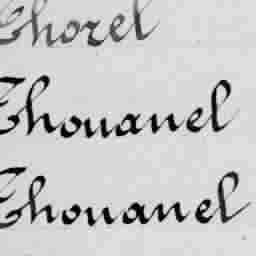 Thorel
Thouanel
Thouanel